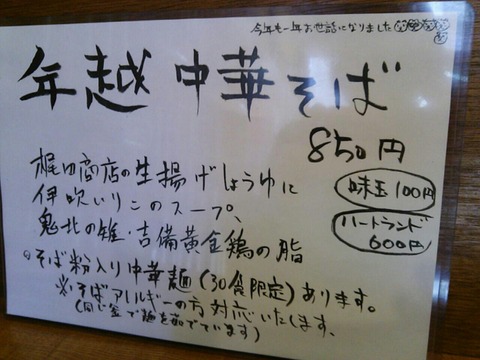 今年も一年お世話になりました
年越中華そば
850円
梶田商店の生揚げしょうゆに
味玉100円
伊吹いりこのスープ、
ハートランド
600円
鬼北の雉・吉備黄金鶏の脂
○そば粉入り中華麺(30食限定)あります。
※そばアレルギーの方対応いたします、
(同じ釜で麺を茹でています)